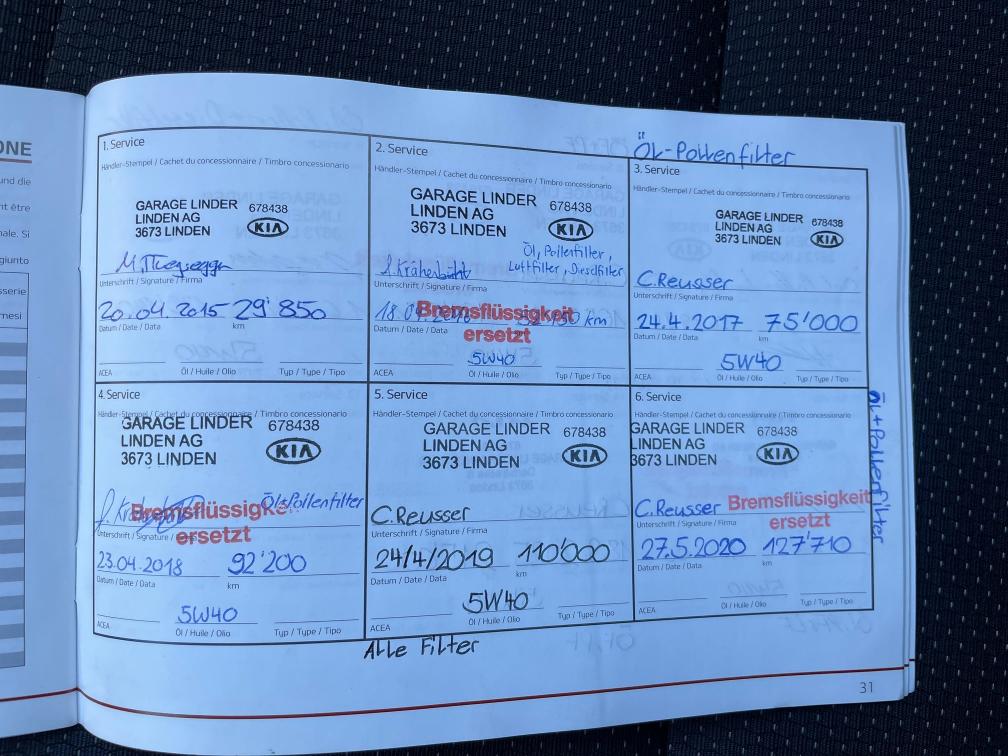 ONE
und die
nt être
nale. Si
giunto
sserie
mesi
1. Service
Händler-Stempel / Cachet du concessionnaire / Timbro concessionario
GARAGE LINDER 678438
LINDEN AG
3673 LINDEN KIA
Unterschrift / Signature / Firma
20.04.2015 29'850
Datum / Date / Data km
ACEA Öl / Huile / Olio Typ / Type / Tipo
2. Service
Händler-Stempel / Cachet du concessionnaire / Timbro concessionario
GARAGE LINDER 678438
LINDEN AG
3673 LINDEN KIA
Öl, Pollenfilter,
Luftfilter, Dieselfilter
Unterschrift / Signature / Firma
Bremsflüssigkeit
ersetzt
km
Datum / Date / Data
5W40
ACEA Öl / Huile / Olio Typ / Type / Tipo
ÖL-Pollenfilter
3. Service
Händler-Stempel / Cachet du concessionnaire / Timbro concessionario
GARAGE LINDER 678438
LINDEN AG
3673 LINDEN KIA
C.Reusser
Unterschrift / Signature / Firma
24.4.2017 75'000
Datum / Date / Data km
5W40
ACEA Öl / Huile / Olio Typ / Type / Tipo
4. Service
Händler-Stempel / Cachet du concessionnaire / Timbro concessionario
GARAGE LINDER 678438
LINDEN AG
3673 LINDEN KIA
Öl+Pollenfilter
Bremsflüssigke
Unterschrift / Signature / ersetzt
23.04.2018 92'200
Datum / Date / Data km
5W40
ACEA Öl / Huile / Olio Typ / Type / Tipo
5. Service
Händler-Stempel / Cachet du concessionnaire / Timbro concessionario
GARAGE LINDER 678438
LINDEN AG
3673 LINDEN KIA
C.Reusser
Unterschrift / Signature / Firma
24/4/2019 110'000
Datum / Date / Data km
5W40
ACEA Öl / Huile / Olio Typ / Type / Tipo
Alle Filter
6. Service
Händler-Stempel / Cachet du concessionnaire / Timbro concessionario
GARAGE LINDER 678438
LINDEN AG
3673 LINDEN KIA
C.Reusser Bremsflüssigkeit
Unterschrift / Signature / Firma ersetzt
27.5.2020 127'710
Datum / Date / Data km
ACEA Öl / Huile / Olio Typ / Type / Tipo
ÖL+Pollenfilter
31